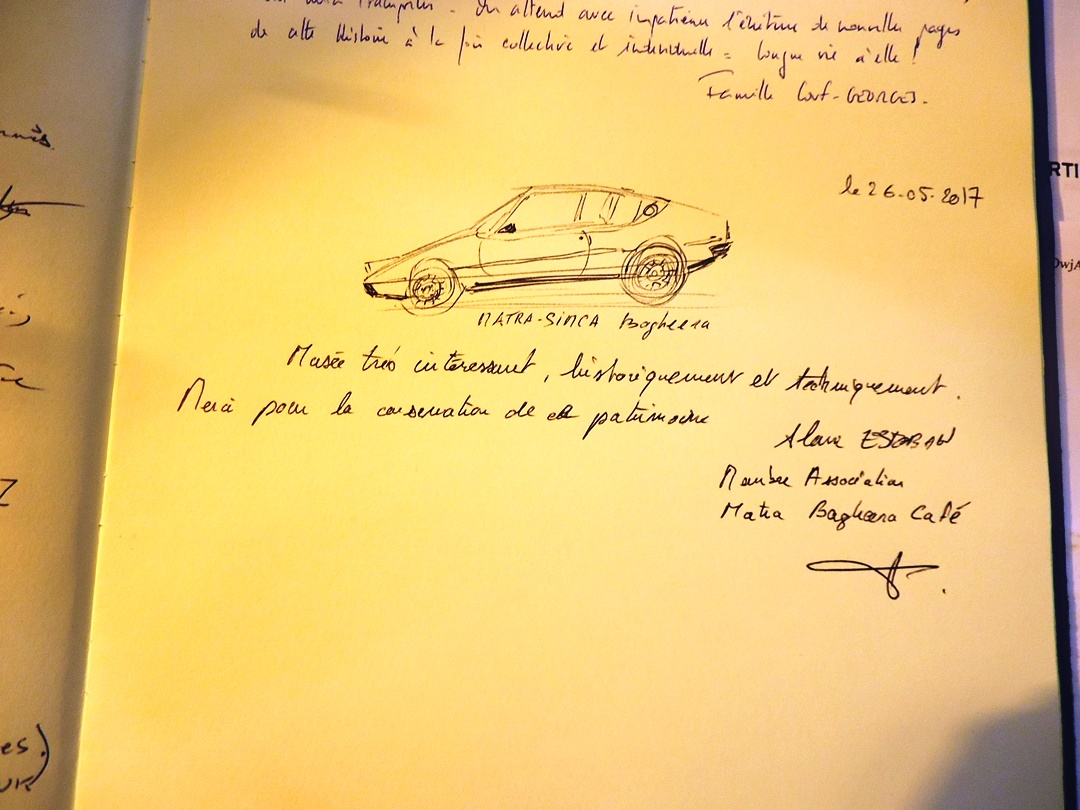 On attend avec impatience l'écriture de nouvelles pages
de cette Histoire à la fois collective et individuelle = longue vie à elle !
Famille GEORGES.
le 26-05-2017
MATRA-SIMCA Bagheera
Musée très intéressant, historiquement et techniquement.
Merci pour la conservation de ce patrimoine
ESTEBAN
Membre Association
Matra Bagheera Café
RTI
es)